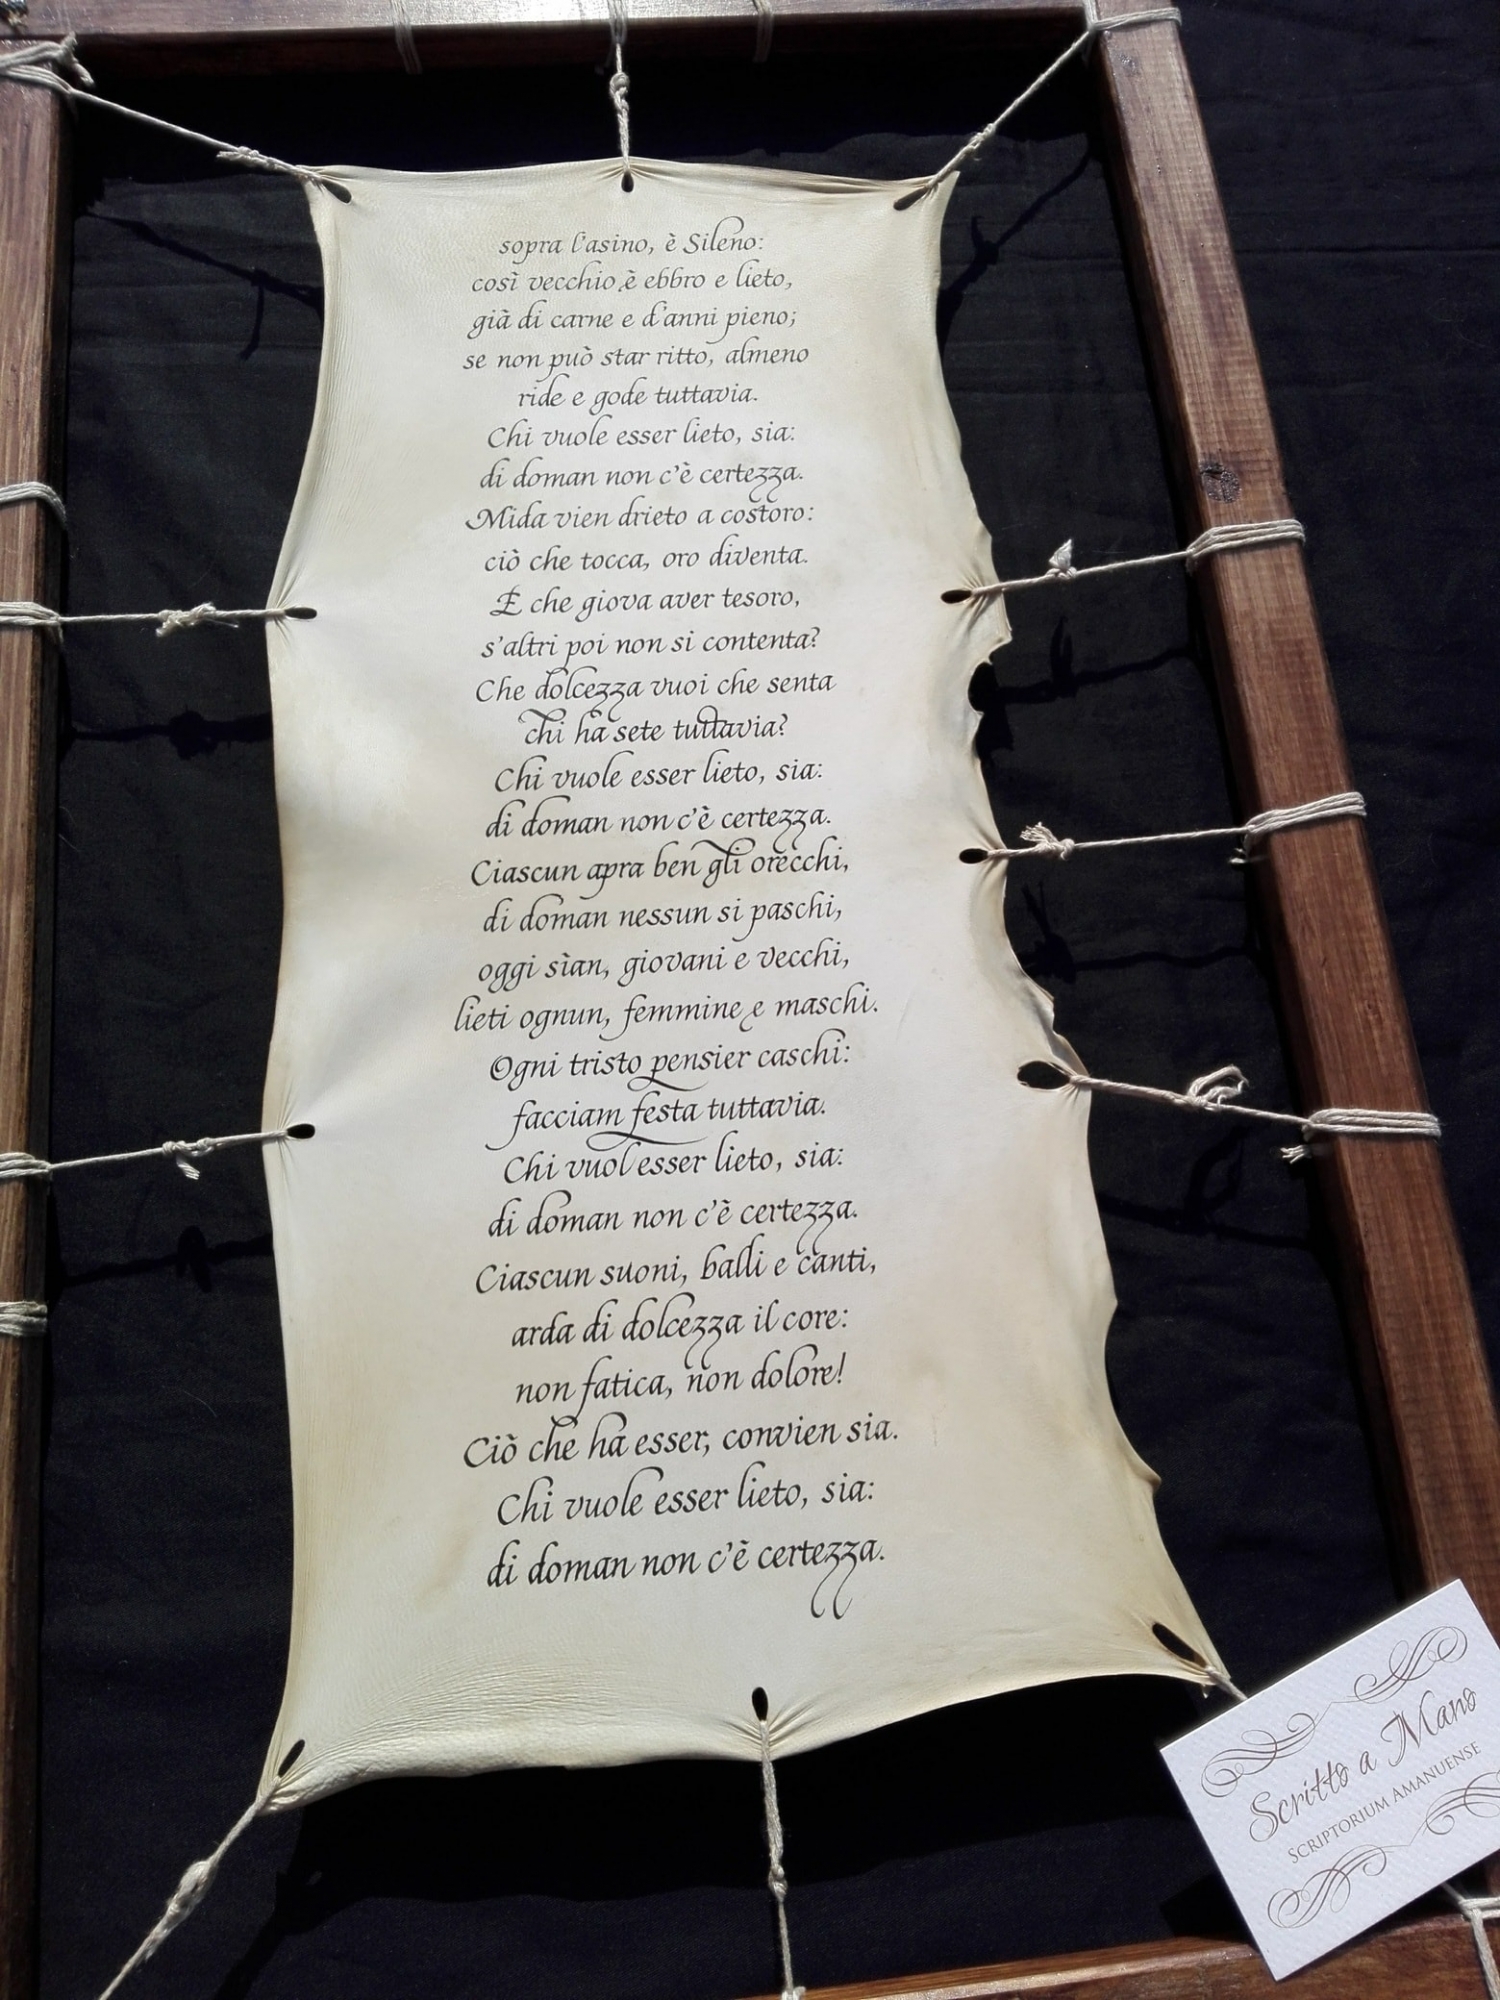 sopra l'asino, è Sileno:
così vecchio è ebbro e lieto,
già di carne e d'anni pieno;
se non può star ritto, almeno
ride e gode tuttavia.
Chi vuole esser lieto, sia:
di doman non c'è certezza.
Mida vien drieto a costoro:
ciò che tocca, oro diventa.
E che giova aver tesoro,
s'altri poi non si contenta?
Che dolcezza vuoi che senta
chi ha sete tuttavia?
Chi vuole esser lieto, sia:
di doman non c'è certezza.
Ciascun apra ben gli orecchi,
di doman nessun si paschi,
oggi sìan, giovani e vecchi,
lieti ognun, femmine e maschi.
Ogni tristo pensier caschi:
facciam festa tuttavia.
Chi vuol esser lieto, sia:
di doman non c'è certezza.
Ciascun suoni, balli e canti,
arda di dolcezza il core:
non fatica, non dolore!
Ciò che ha esser, convien sia.
Chi vuole esser lieto, sia:
di doman non c'è certezza.
Scritto a Mano
SCRIPTORIUM AMANUENSE